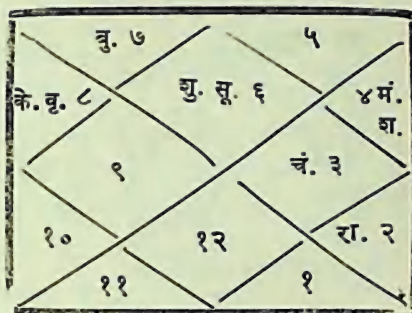 बु. ७ ५
के. वृ. ८ शु. सू. ६ ४ मं.
श.
९ चं. ३
१० १२ रा. २
११ १